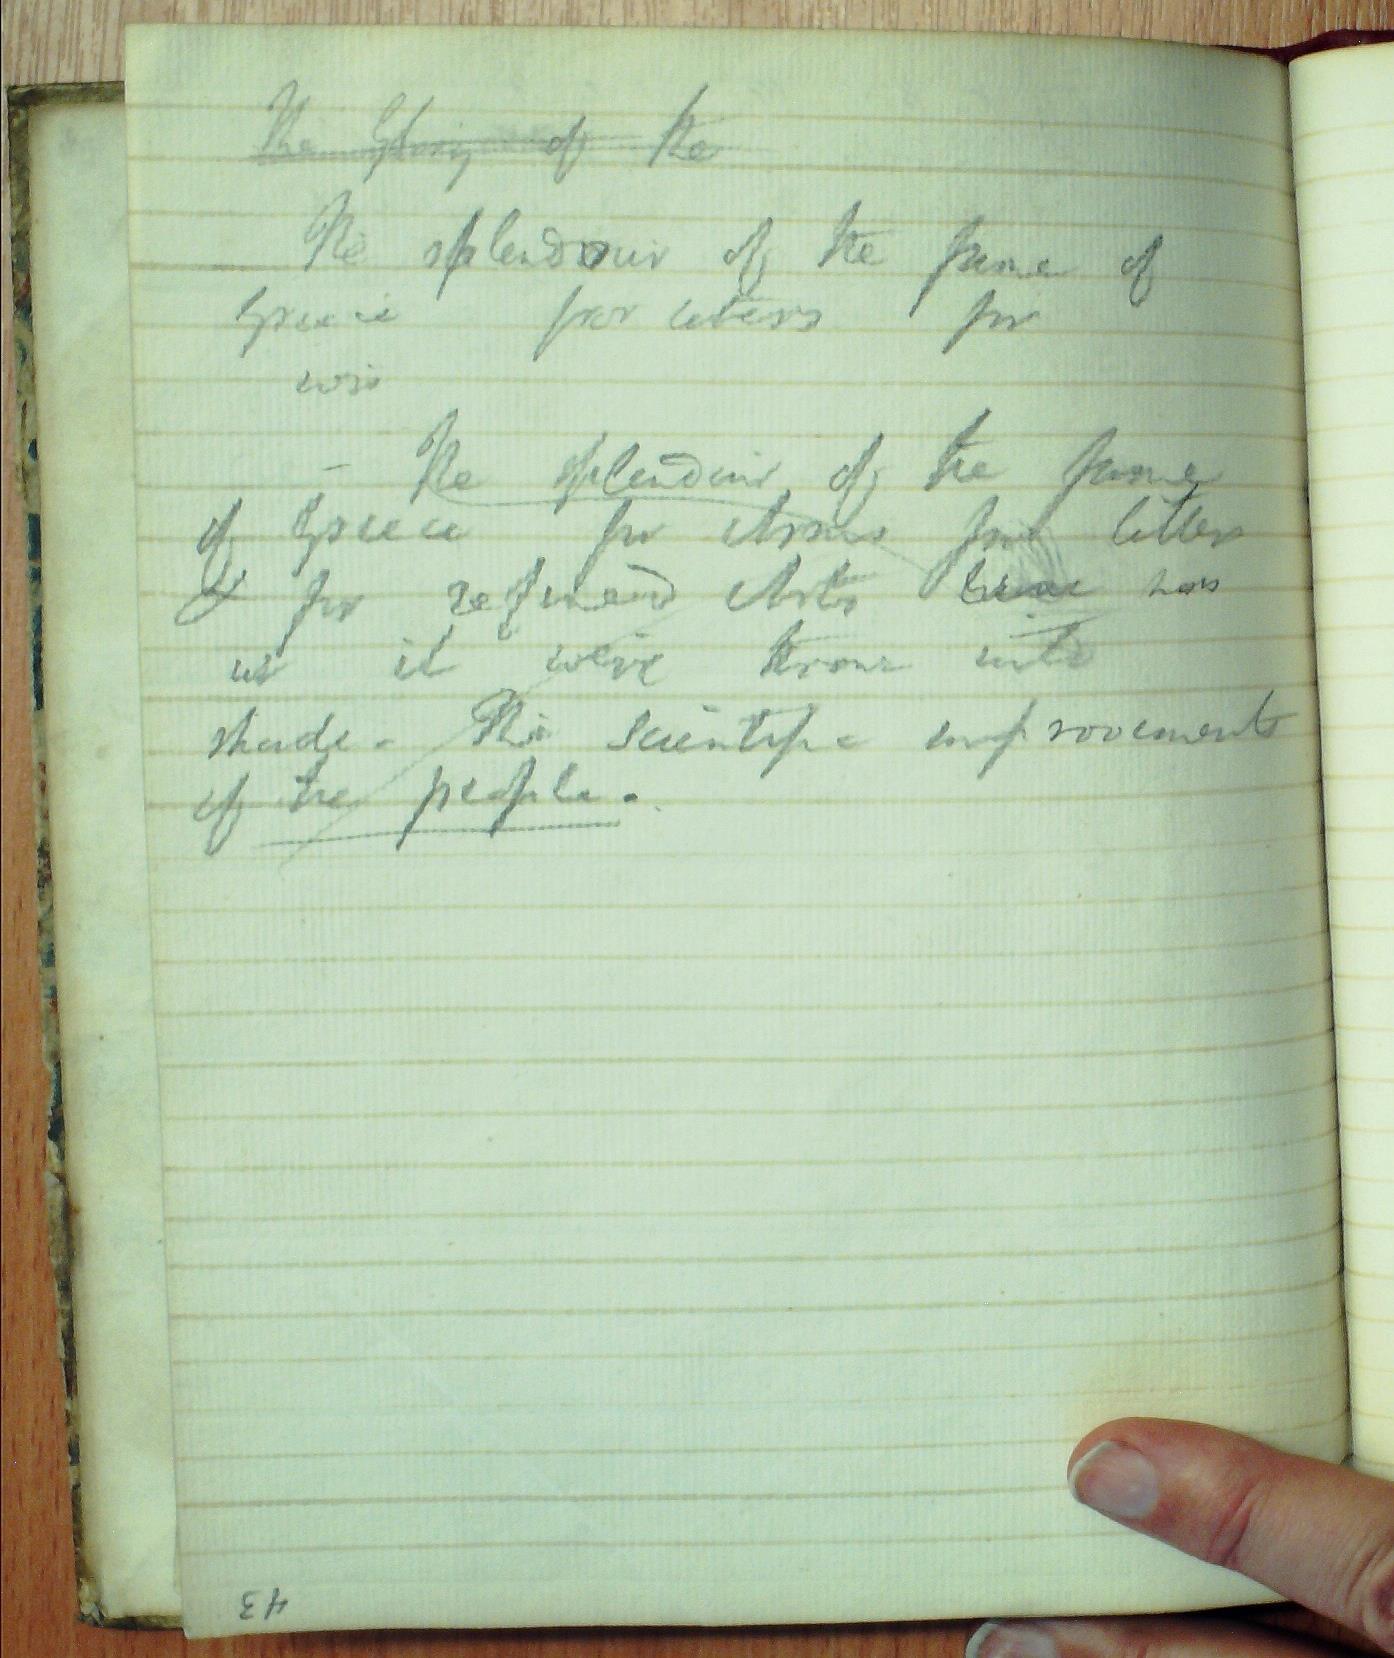 The Glory of the
The splendour of the fame of
Greece for letters for
wis
- The splendour of the fame
of Greece for Arms for letters
& for refined Arts has
as it were thrown into
shade. The scientific improvements
of the people.
43